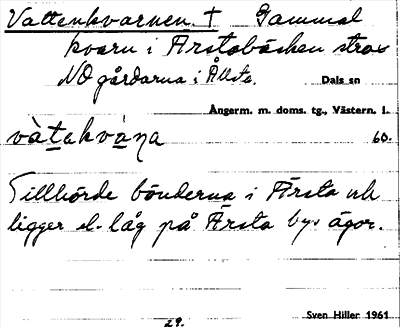 Vattenkvarnen. † Gammal
kvarn i Ärstabäcken strax
NO gårdarna i Ållsta.
Dals sn
Ångerm. m. doms. tg., Västern. l.
vàtakvàṇa 60.
Tillhörde bönderna i Ärsta och
ligger el. låg på Ärsta bys ägor.
29. Sven Hiller 1961